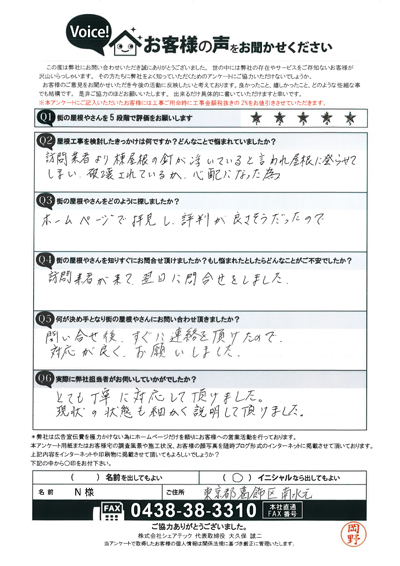 Voice!
お客様の声をお聞かせください
この度は弊社にお問い合わせいただき誠にありがとうございました。世の中には弊社の存在やサービスをご存知ないお客様が
沢山いらっしゃいます。その方たちに弊社をよく知っていただくためのアンケートにご協力いただけないでしょうか。
お客様のご意見をお聞かせいただき今後の活動に反映したいと考えております。良かったこと、嬉しかったこと、どのような些細な事
でも結構です。是非ご協力のほどお願いいたします。出来るだけ具体的に書いていただけますと幸いです。
※本アンケートにご記入いただいたお客様には工事ご用命時に工事金額税抜きの2%をお値引きさせていただきます。
Q1 街の屋根やさんを5段階で評価をお願いします ★ ★ ★ ★ ★
Q2 屋根工事を検討したきっかけは何ですか?どんなことで悩まれていましたか?
訪問業者より棟屋根の釘が浮いていると言われ屋根に登らせて
しまい、破壊されているか、心配になった為
Q3 街の屋根やさんをどのように探しましたか?
ホームページで拝見し、評判が良さそうだったので
Q4 街の屋根やさんを知りすぐにお問合せ頂けましたか?もし悩まれたとしたらどんなことがご不安でしたか?
訪問業者が来て、翌日に問合せをしました。
Q5 何が決め手となり街の屋根やさんにお問い合わせ頂きましたか?
問い合せ後、すぐに連絡を頂けたので、
対応が良く、お願いしました。
Q6 実際に弊社担当者がお伺いしていかがでしたか?
とても丁寧に対応して頂けました。
現状の状態も細かく説明して頂けました。
＊弊社は広告宣伝費を極力かけない為にホームページだけを頼りにお客様への営業活動を行っております。
本アンケート用紙またはお客様宅の調査風景や施工状況、お客様の顔写真を随時ブログ形式のインターネットに掲載させて頂いております。
上記内容をインターネットや印刷物に掲載させて頂いてもよろしいでしょうか?
下記の中から〇印をお付下さい。
( ) 名前を出してもよい ( 〇 ) イニシャルなら出してもよい
名前 N様 ご住所 東京都葛飾区南水元
FAX 0438-38-3310 本社直通 FAX番号
ご協力ありがとうございました。
株式会社シェアテック 代表取締役 大久保 誠二
当アンケートで取得したお客様の個人情報は関係法規に基づき厳正に管理いたします。
岡野